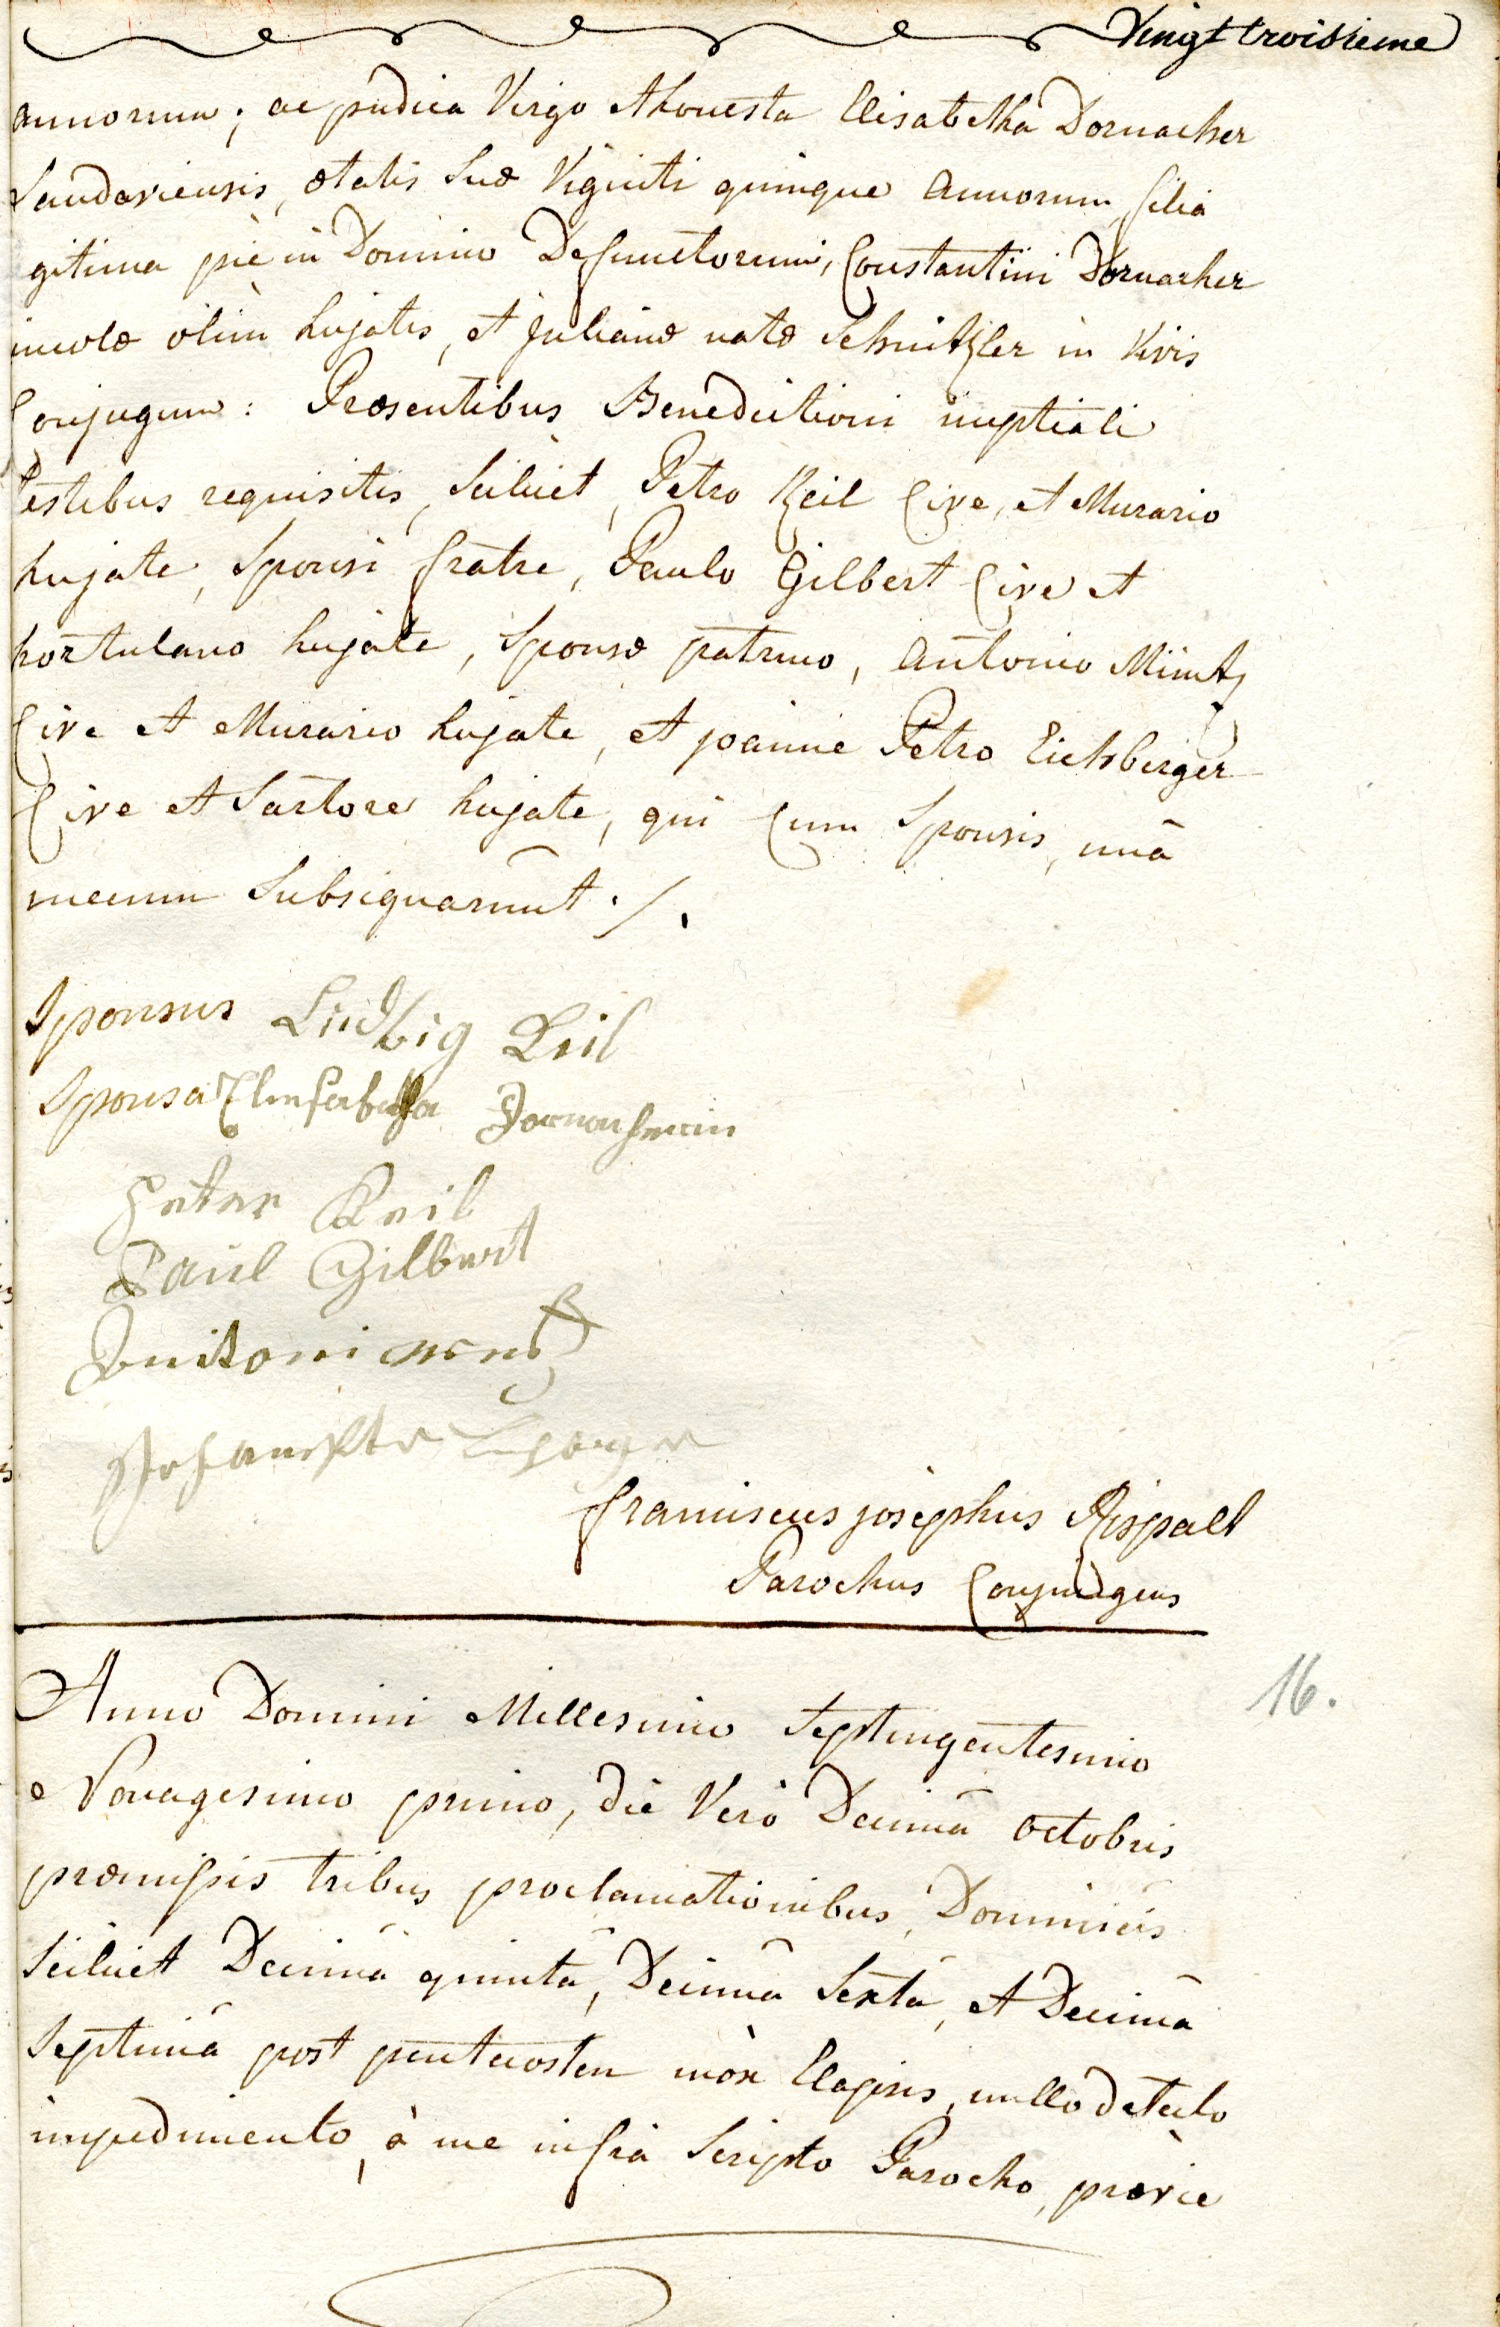 Vingt troisieme
annorum; ac pudica Virgo et honesta Elisabetha Dornacher
Landaviensis, ætatis suæ Viginti quinque annorum filia
gitima piè in Domino Defunctorum, Constantini Dornacher
incolæ olim hujatis, et Julianæ natæ Schnitzler in Vivis
Conjugum: Præsentibus Benedictioni nuptiali
testibus requisitis, scilicet, Petro Keil Cive, et Murario
hujate, Sponsi fratre, Paulo Gilbert Cive et
hortulano hujate, Sponsæ patruo, Antonio Müntz
Cive et Murario hujate, et joanne Petro Eichberger
Cive et Sartore hujate, qui Cum Sponsis, unâ
mecum Subsignarunt ·/.
Sponsus Ludwig Keil
Sponsa Elisabetha Dornacherin
Peter Keil
Paul Gilbert
Antoni
Franciscus josephus Rispalt
Parochus Conjungens
16.
Anno Domini Millesimo Septingentesimo
Nonagesimo primo, die Vero Decimâ octobris
præmissis tribus proclamationibus, Dominicis
Scilicet Decimâ quintâ, Decimâ Sextâ, et Decimâ
Septimâ post pentecosten mòx Elapsis, nullo detecto
impedimento, à me infrà Scripto Parocho, prævie